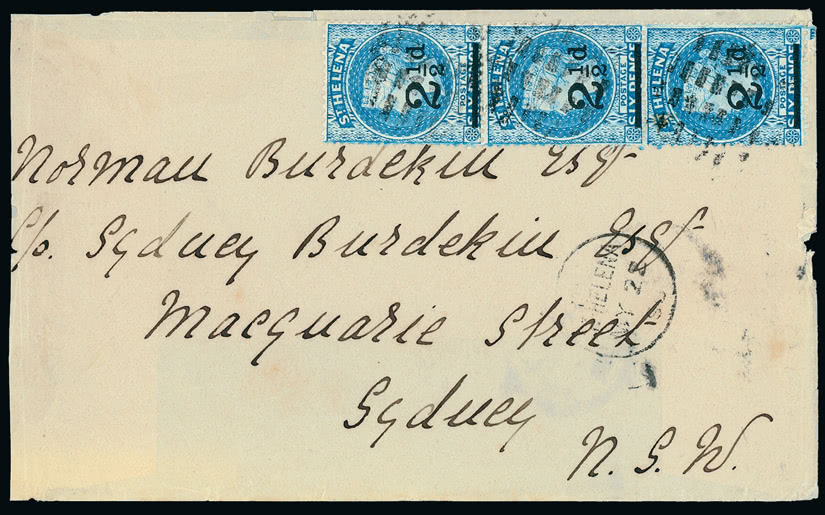 ST HELENA POSTAGE SIX PENCE 2½d
ST HELENA POSTAGE SIX PENCE 2½d
HELENA POSTAGE SIX PENCE 2½d
Norman Burdekin Esqr
c/o. Sydney Burdekin Esqr
Macquarie Street
Sydney
N. S. W.
HELENA
MY 25